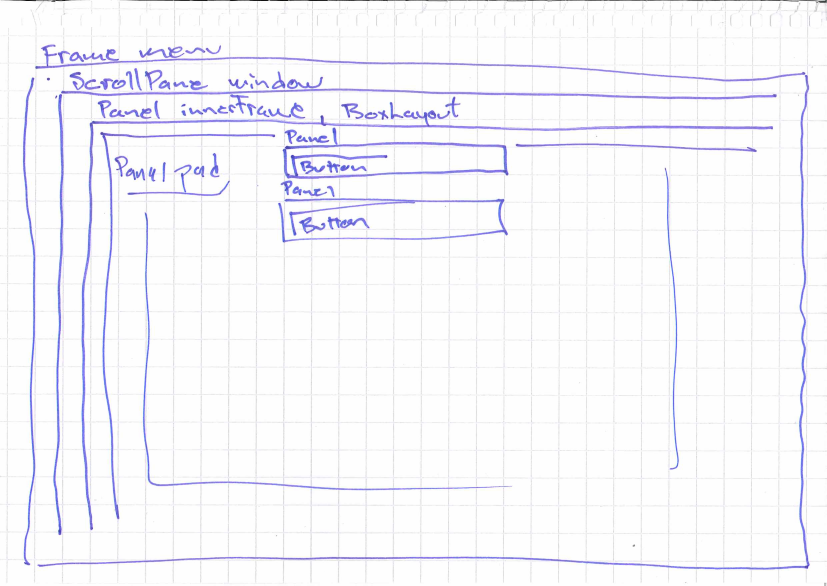 Frame menu
ScrollPane window
Panel innerFrame, BoxLayout
Panel
Button
Panel pad
Panel
Button